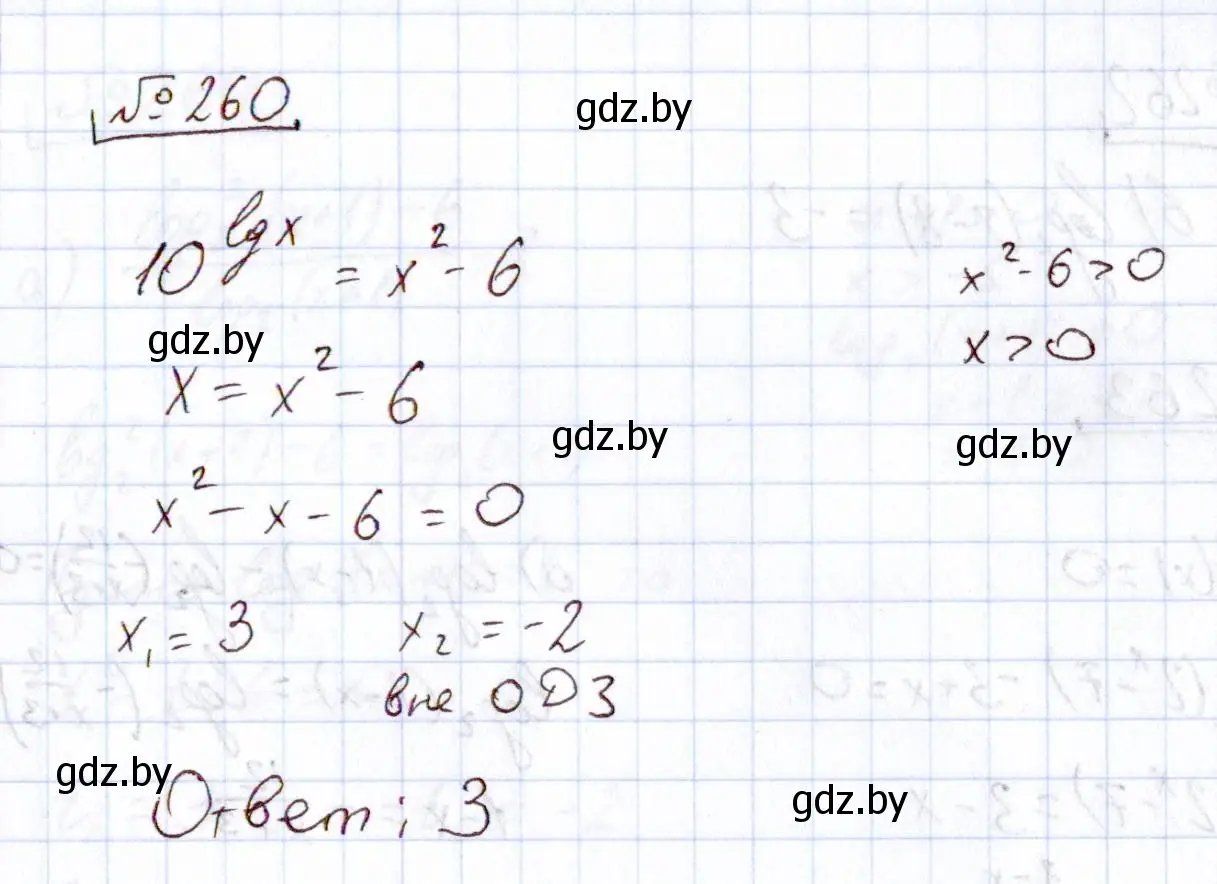 № 260.
gdz.by
10^lg x = x² - 6
x² - 6 > 0
gdz.by
x > 0
x = x² - 6
gdz.by
gdz.by
x² - x - 6 = 0
x₁ = 3 x₂ = -2
вне ОДЗ
gdz.by
Ответ: 3
gdz.by